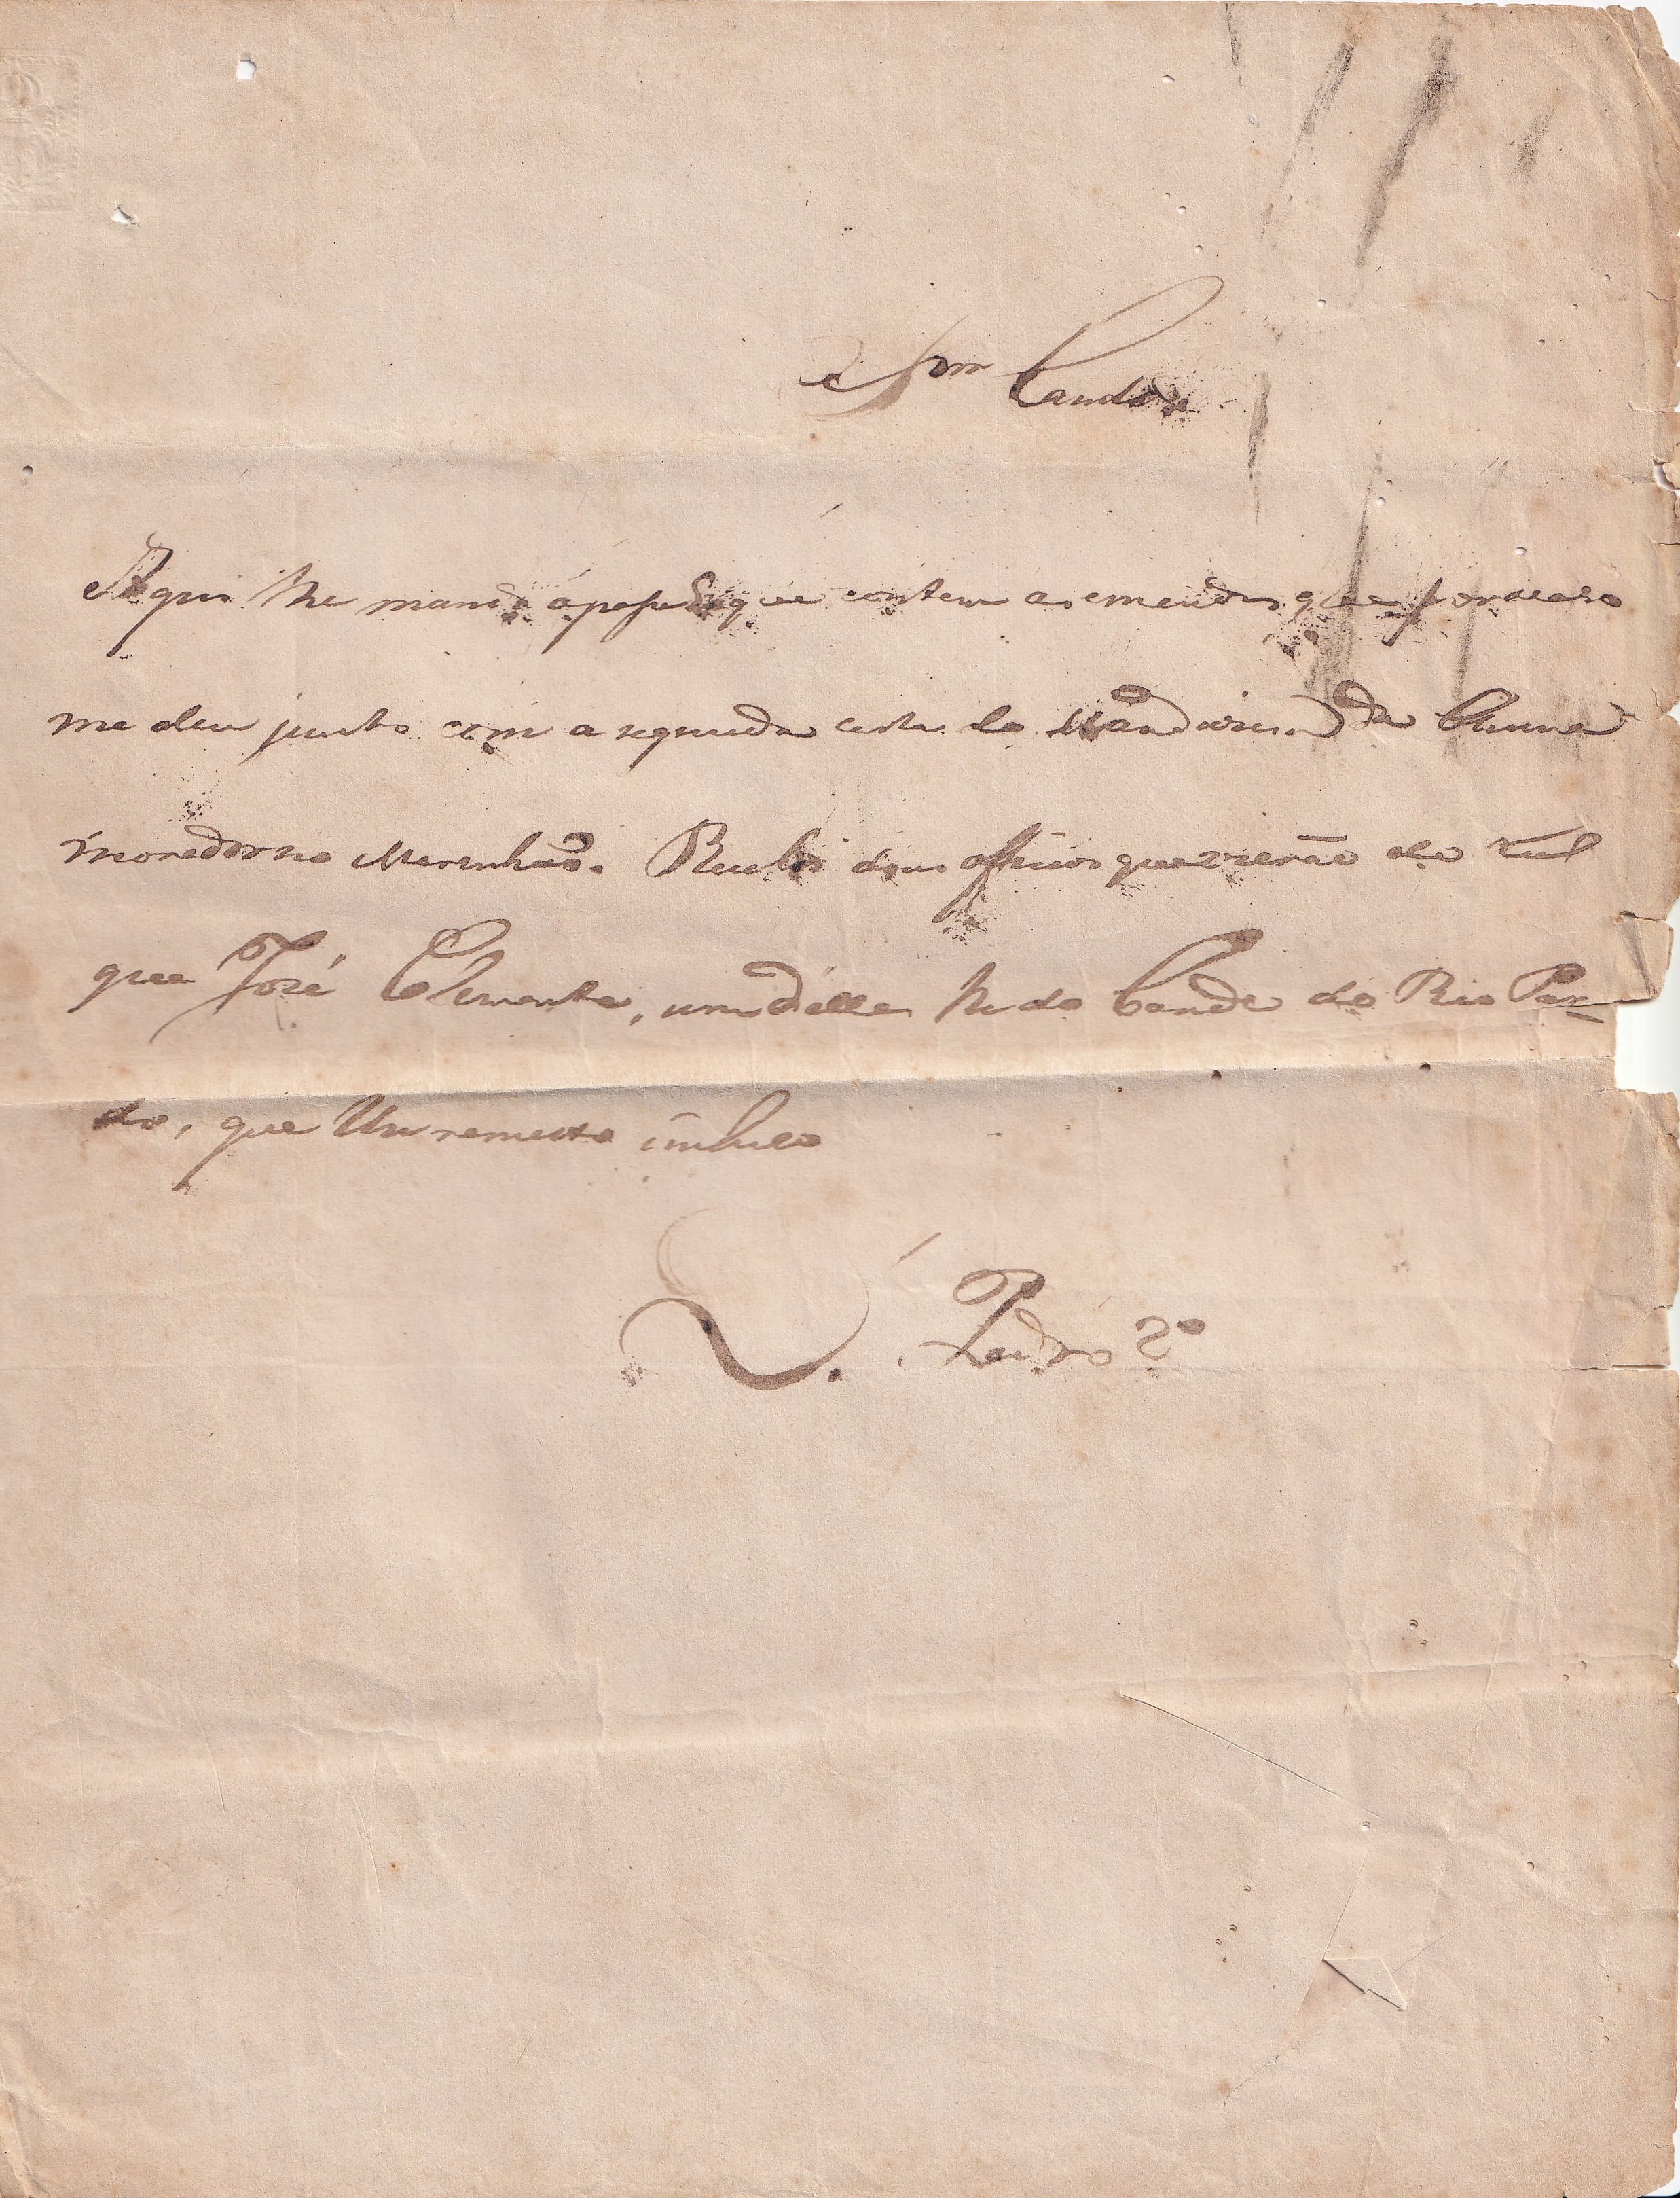 Snr Candido
Aqui lhe mando o papel que contem as emendas que por acaso
me deu junto com a segunda carta do da Cunha
morador no Maranhão. Recebi dous officios que vierão do Sul
que José Clemente, um d'elles he do Conde do Rio Par-
do, que lhe remetto incluso
D. Pedro 2º